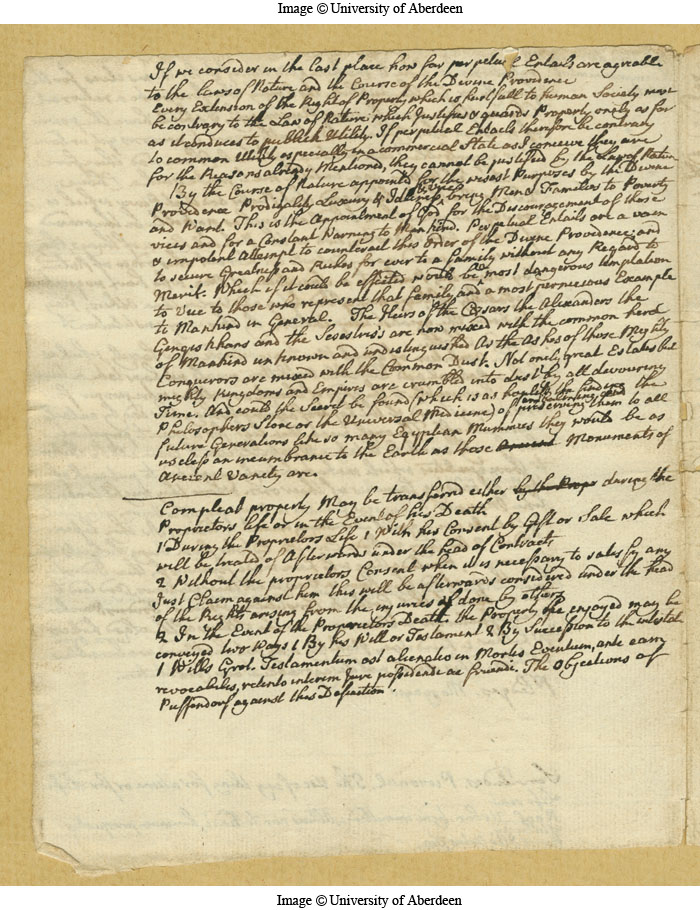 Image © University of Aberdeen
If we consider in the last place how far perpetual Entails are agreable
to the Laws of Nature and the Course of the Divine Providence
Every Extension of the Right of Property which is hurtfull to human Society must
be contrary to the Law of Nature which Justifies & guards Property onely as far
as it conduces to publick Utility. If perpetual Entails therefore be contrary
to common Utility especially in a commercial State as I conceive they are
for the Reasons already Mentioned, they cannot be justified by the Law of Nature
By the Course of Nature appointed for the wisest Purposes by the Divine
Providence Prodigality Luxury & Idleness & vice bring Men & Families to Poverty
and Want. This is the Appointment of God for the Discouragement of those
vices and for a Constant Warning to Mankind. Perpetual Entails are a vain
& impotent Attempt to counteract this Order of the Divine Providence; and
to secure Greatness and Riches for ever to a family without any Regard to
Merit. Which if it could be effected would be a most dangerous temptation
to Vice to those who represent that family and a most pernicious Example
to Mankind in General. The Heirs of the Cæsars the Alexanders the
Gengishkans and the Sesostris's are now mixed with the common herd
of Mankind unknown and undistinguished As the Ashes of those Mighty
Conquerors are mixed with the Common Dust. Not onely great Estates but
mighty Kingdoms and Empires are crumbled into dust by all devouring
Time. And could the Secret be found (which is as hopeless as the finding the
Philosophers Stone or the Universal Medicine) of preserving them to all
future Generations like so many Egyptian Mummies they would be as
useless an incumbrance to the Earth as those Monuments of
Ancient Vanity are.
Compleat property May be transferred either by the Propr during the
Proprietors life or in the Event of his Death
1 During the Proprietors Life 1 With his Consent by Gift or Sale which
will be treated of Afterwards under the head of Contracts
2 Without the proprietors Consent when it is necessary to satisfy any
Just Claim against him this will be afterwards considered under the head
of the Rights arising from the injuries done by others
2 In the Event of the Proprietors Death the Property he enjoyed may be
conveyed two Ways 1 By his Will or Testament 2 By Succession to the intestate
1 Wills Grot. Testamentum est alienatio in Mortis Eventum, ante eam
revocabilis, retento interim Jure possidendi ac fruendi. The Objections of
Puffendorf against this Definition.
Image © University of Aberdeen